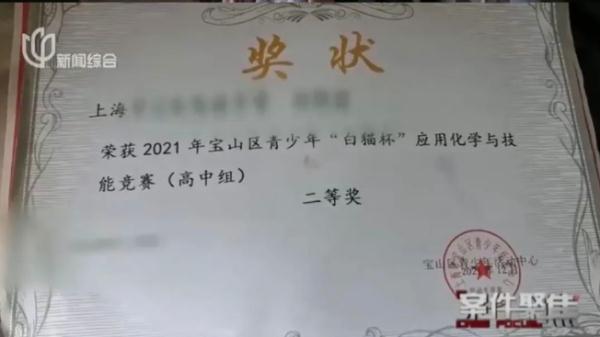 新闻综合
奖状
上海
荣获2021年宝山区青少年“白猫杯”应用化学与技
能竞赛（高中组）
二等奖
宝山区青少年活动中心
2021年12月
案件聚焦
CASE FOCUS